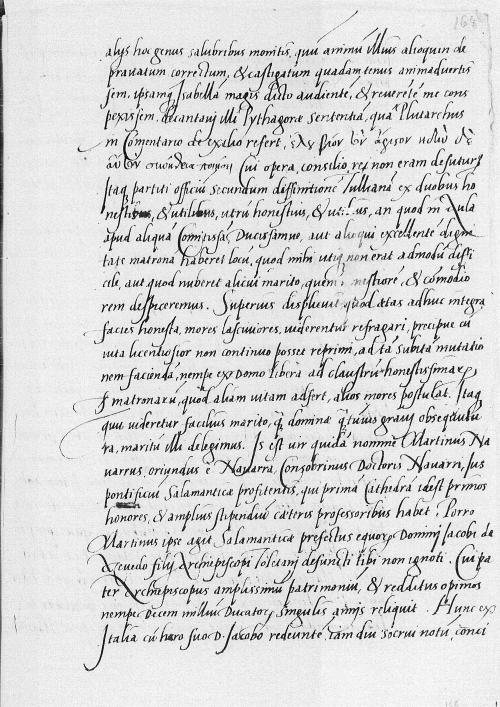 168
alijs hoc genus salubribus monitis, quū animū illius alioquin de
pravatum correctum, & castigatum quadam tenus animadvertis
sem, ipsamq Isabellā magis dicto audientē, & reverētē me cons
pexissem, decantavi illi Pythagoræ sententiā, quā Plutarchus
in Comentario de exilio refert, βίον τὸν ἄριστον
Cui opera, consilio rei non eram defuturꝰ
Itaq partiti officiū secundum diffinitionē Tullianā ex duobus ho
nestibus, & utilibus, utrū honestius, & utilius, an quod in Aula
apud aliquā Comitissā, Ducissamve, aut alioqui excellentē digni
tate matronā haberet locū, quod mihi utiq non erat admodū diffi
cile, aut quod nuberet alicui marito, quem honestiorē, & cōmodio
rem despiceremus. Superius displicuit, quod ætas adhuc integra
facies honesta, mores lasciviores, viderentur refragari, precipue cū
vita licentiosior non continuo posset reprimi, ad tā subitā mutatio
nem faciendā, nempe ex Domo libera ad claustrū honestissimarꝝ
matronarū, quod aliam vitam adfert, alios mores postulat. Itaq
quū videretur facilius marito, q̄ dominæ q̄tūvis gravi obsequutu
ra, maritū illi delegimus. Is est vir quidā nomine Martinus Na
varrus, oriundus è Navarra, Consobrinus Doctoris Navarri, Jus
pontificiū Salamanticæ profitentis, qui primā Cathedrā idest primos
honores, & amplius stipendiū cæteris professoribus habet. Porro
Martinus ipse agit Salamanticæ prefectus equorꝝ Domini Jacobi de
Azevedo filij Archiepiscopi Toletani defuncti tibi non ignoti. Cui pa
ter Archiepiscopus amplissimū patrimoniū, & redditus opimos
nempe Decem milliū Ducatorꝝ singulis annis reliquit. Hunc ex
Italia cū hero suo D. Jacobo redeuntē, iam diu socrui notū, conci